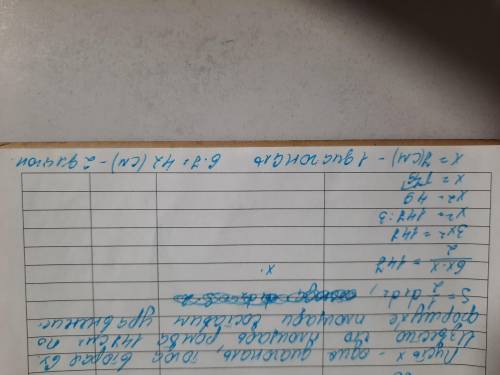 Пусть x - одна диагональ, тогда вторая 6x
Известно, что площадь ромба 147 см². По
формуле площади составим уравнение.
S = 1/2 d₁d₂
6x·x/2 = 147
3x² = 147
x² = 147:3
x² = 49
x = √49
x = 7(см) - 1 диагональ 6·7 = 42 (см) - 2 диагон.